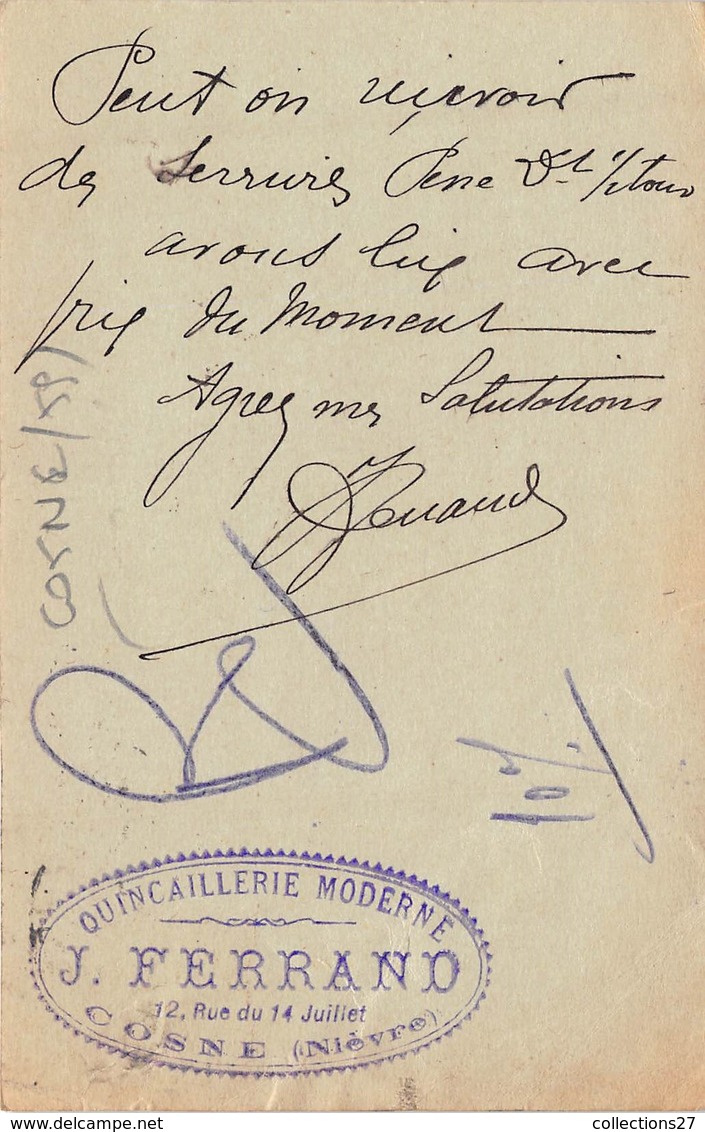 Peut on reçevoir
des Serrures Pene Dt 1/2 tour
avous lije avec
prix du Moment
Agreez mes Salutations
JFerrand
COSNE/58/
10%
QUINCAILLERIE MODERNE
J. FERRAND
12, Rue du 14 Juillet
COSNE (Nièvre)
collections27